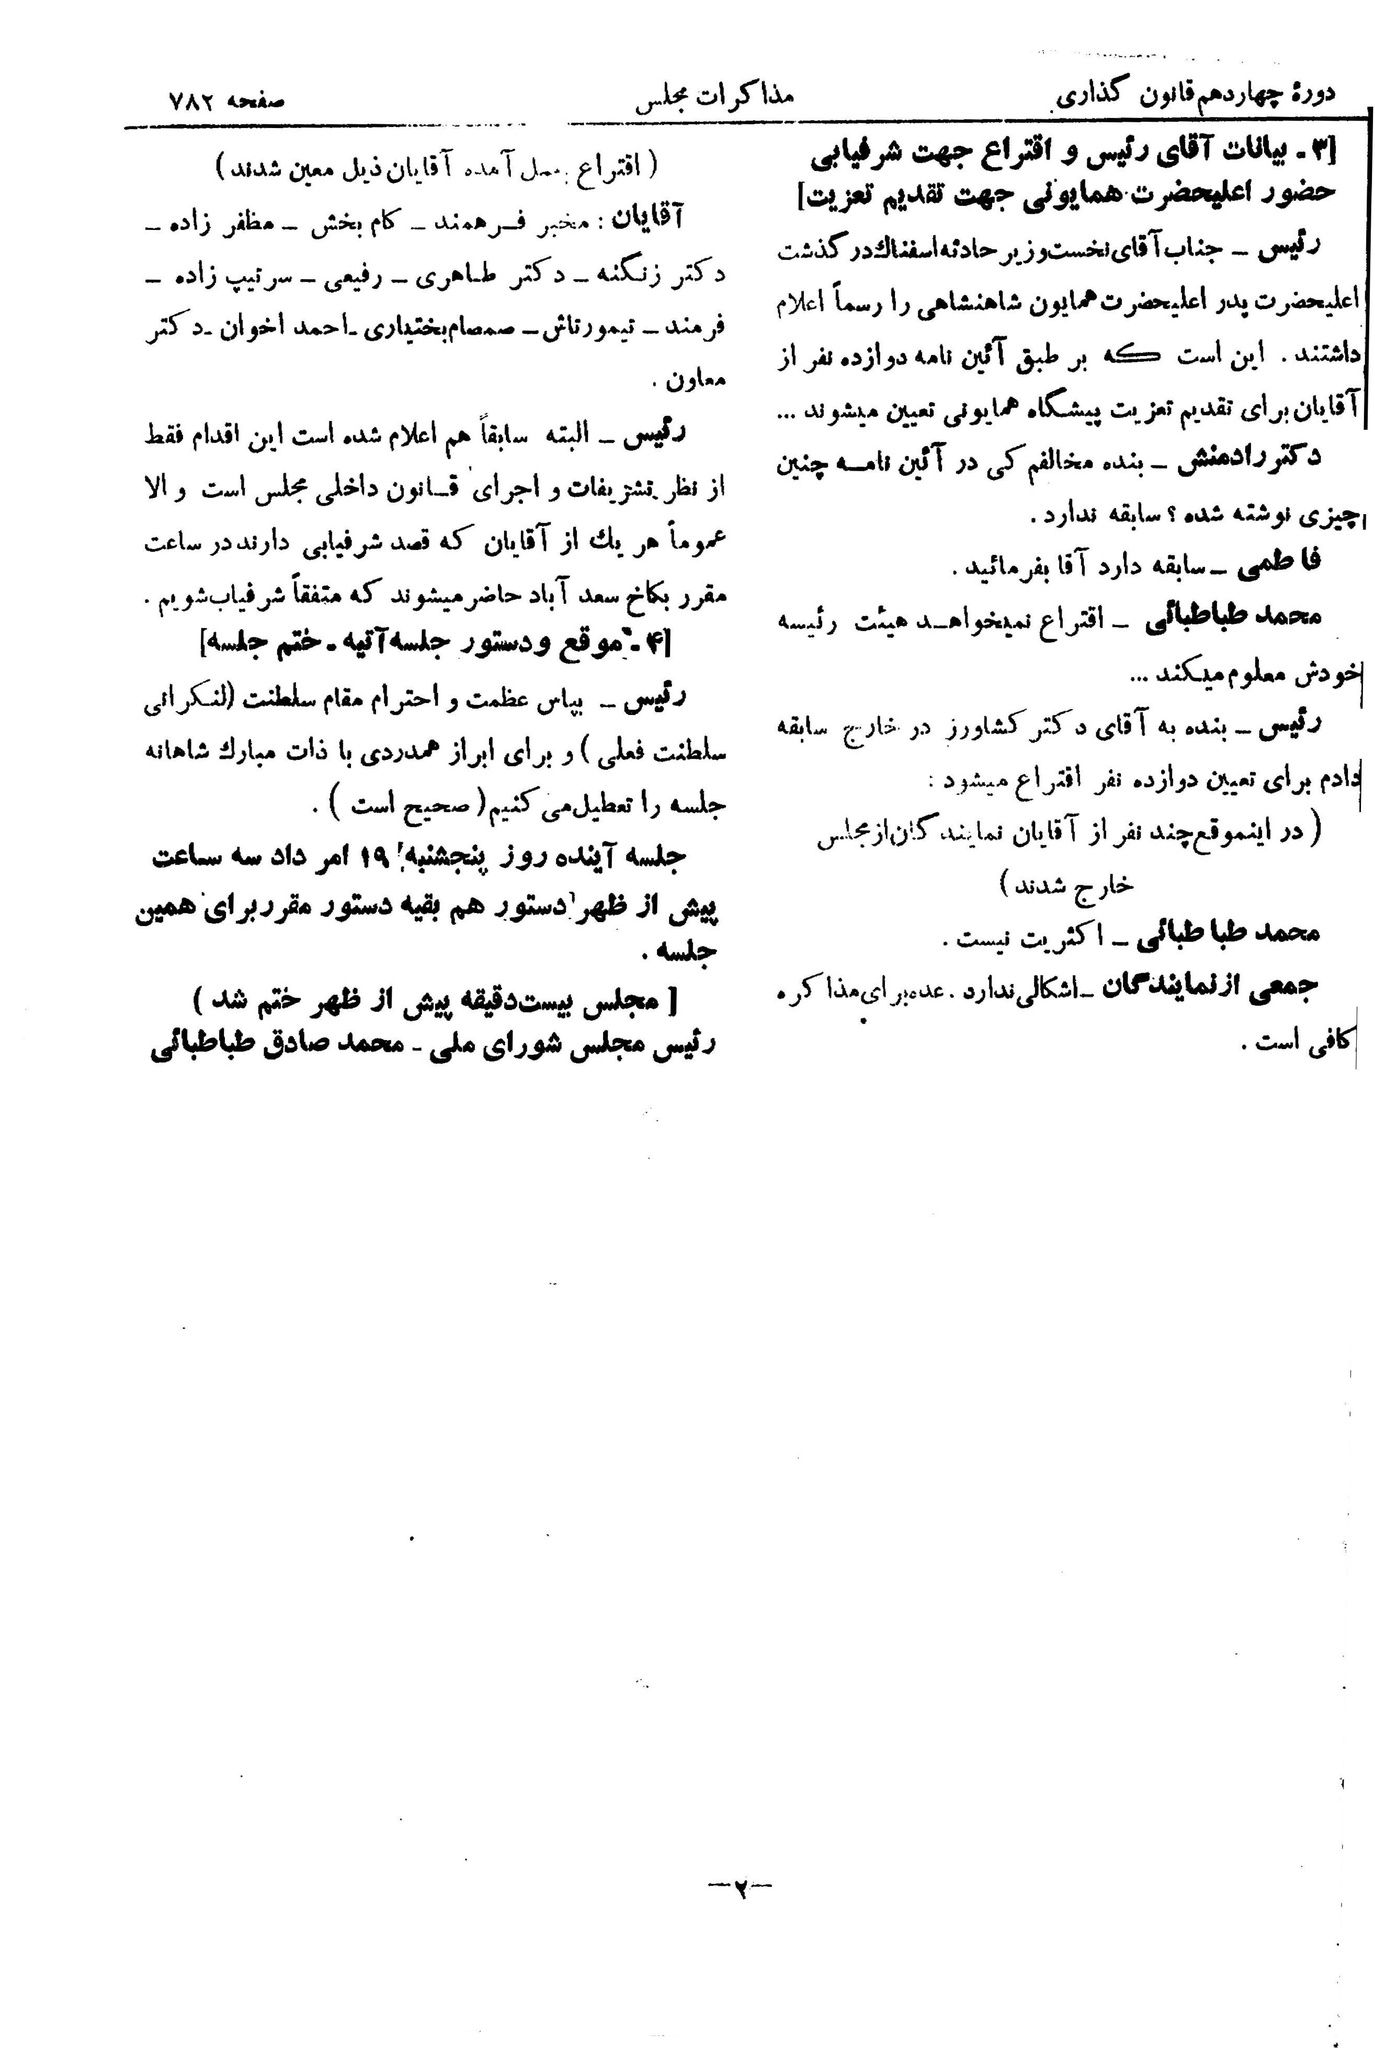 دورهٔ چهاردهم قانون گذاری
مذاکرات مجلس
صفحه ۷۸۲
[۳ - بیانات آقای رئیس و اقتراع جهت شرفیابی
حضور اعلیحضرت همایونی جهت تقدیم تعزیت]
رئیس - جناب آقای نخست وزیر حادثه اسفناك در گذشت
اعلیحضرت پدر اعلیحضرت همایون شاهنشاهی را رسماً اعلام
داشتند . این است که بر طبق آئین نامه دوازده نفر از
آقایان برای تقدیم تعزیت پیشگاه همایونی تعیین میشوند ...
دکتر رادمنش - بنده مخالفم کی در آئین نامه چنین
چیزی نوشته شده ؟ سابقه ندارد .
فاطمی - سابقه دارد آقا بفرمائید .
محمد طباطبائی - اقتراع نمیخواهد هیئت رئیسه
خودش معلوم میکند ...
رئیس - بنده به آقای دکتر کشاورز در خارج سابقه
دادم برای تعیین دوازده نفر اقتراع میشود :
( در اینموقع چند نفر از آقایان نمایندگان از مجلس
خارج شدند )
محمد طباطبائی - اکثریت نیست .
جمعی از نمایندگان - اشکالی ندارد . عده برای مذاکره
کافی است .
( اقتراع بعمل آمده آقایان ذیل معین شدند )
آقایان : مخبر فرهمند - کام بخش - مظفر زاده -
دکتر زنگنه - دکتر طاهری - رفیعی - سرتیپ زاده -
فرمند - تیمورتاش - صمصام بختیاری - احمد اخوان - دکتر
معاون .
رئیس - البته سابقاً هم اعلام شده است این اقدام فقط
از نظر تشریفات و اجرای قانون داخلی مجلس است و الا
عموماً هر یك از آقایان که قصد شرفیابی دارند در ساعت
مقرر بکاخ سعد آباد حاضر میشوند که متفقاً شرفیاب شویم .
[۴ - موقع و دستور جلسه آتیه - ختم جلسه]
رئیس - بپاس عظمت و احترام مقام سلطنت (لنکرانی
سلطنت فعلی ) و برای ابراز همدردی با ذات مبارك شاهانه
جلسه را تعطیل می کنیم ( صحیح است ) .
جلسه آینده روز پنجشنبه ۱۹ امر داد سه ساعت
پیش از ظهر دستور هم بقیه دستور مقرر برای همین
جلسه .
[ مجلس بیست دقیقه پیش از ظهر ختم شد )
رئیس مجلس شورای ملی - محمد صادق طباطبائی
-۲-